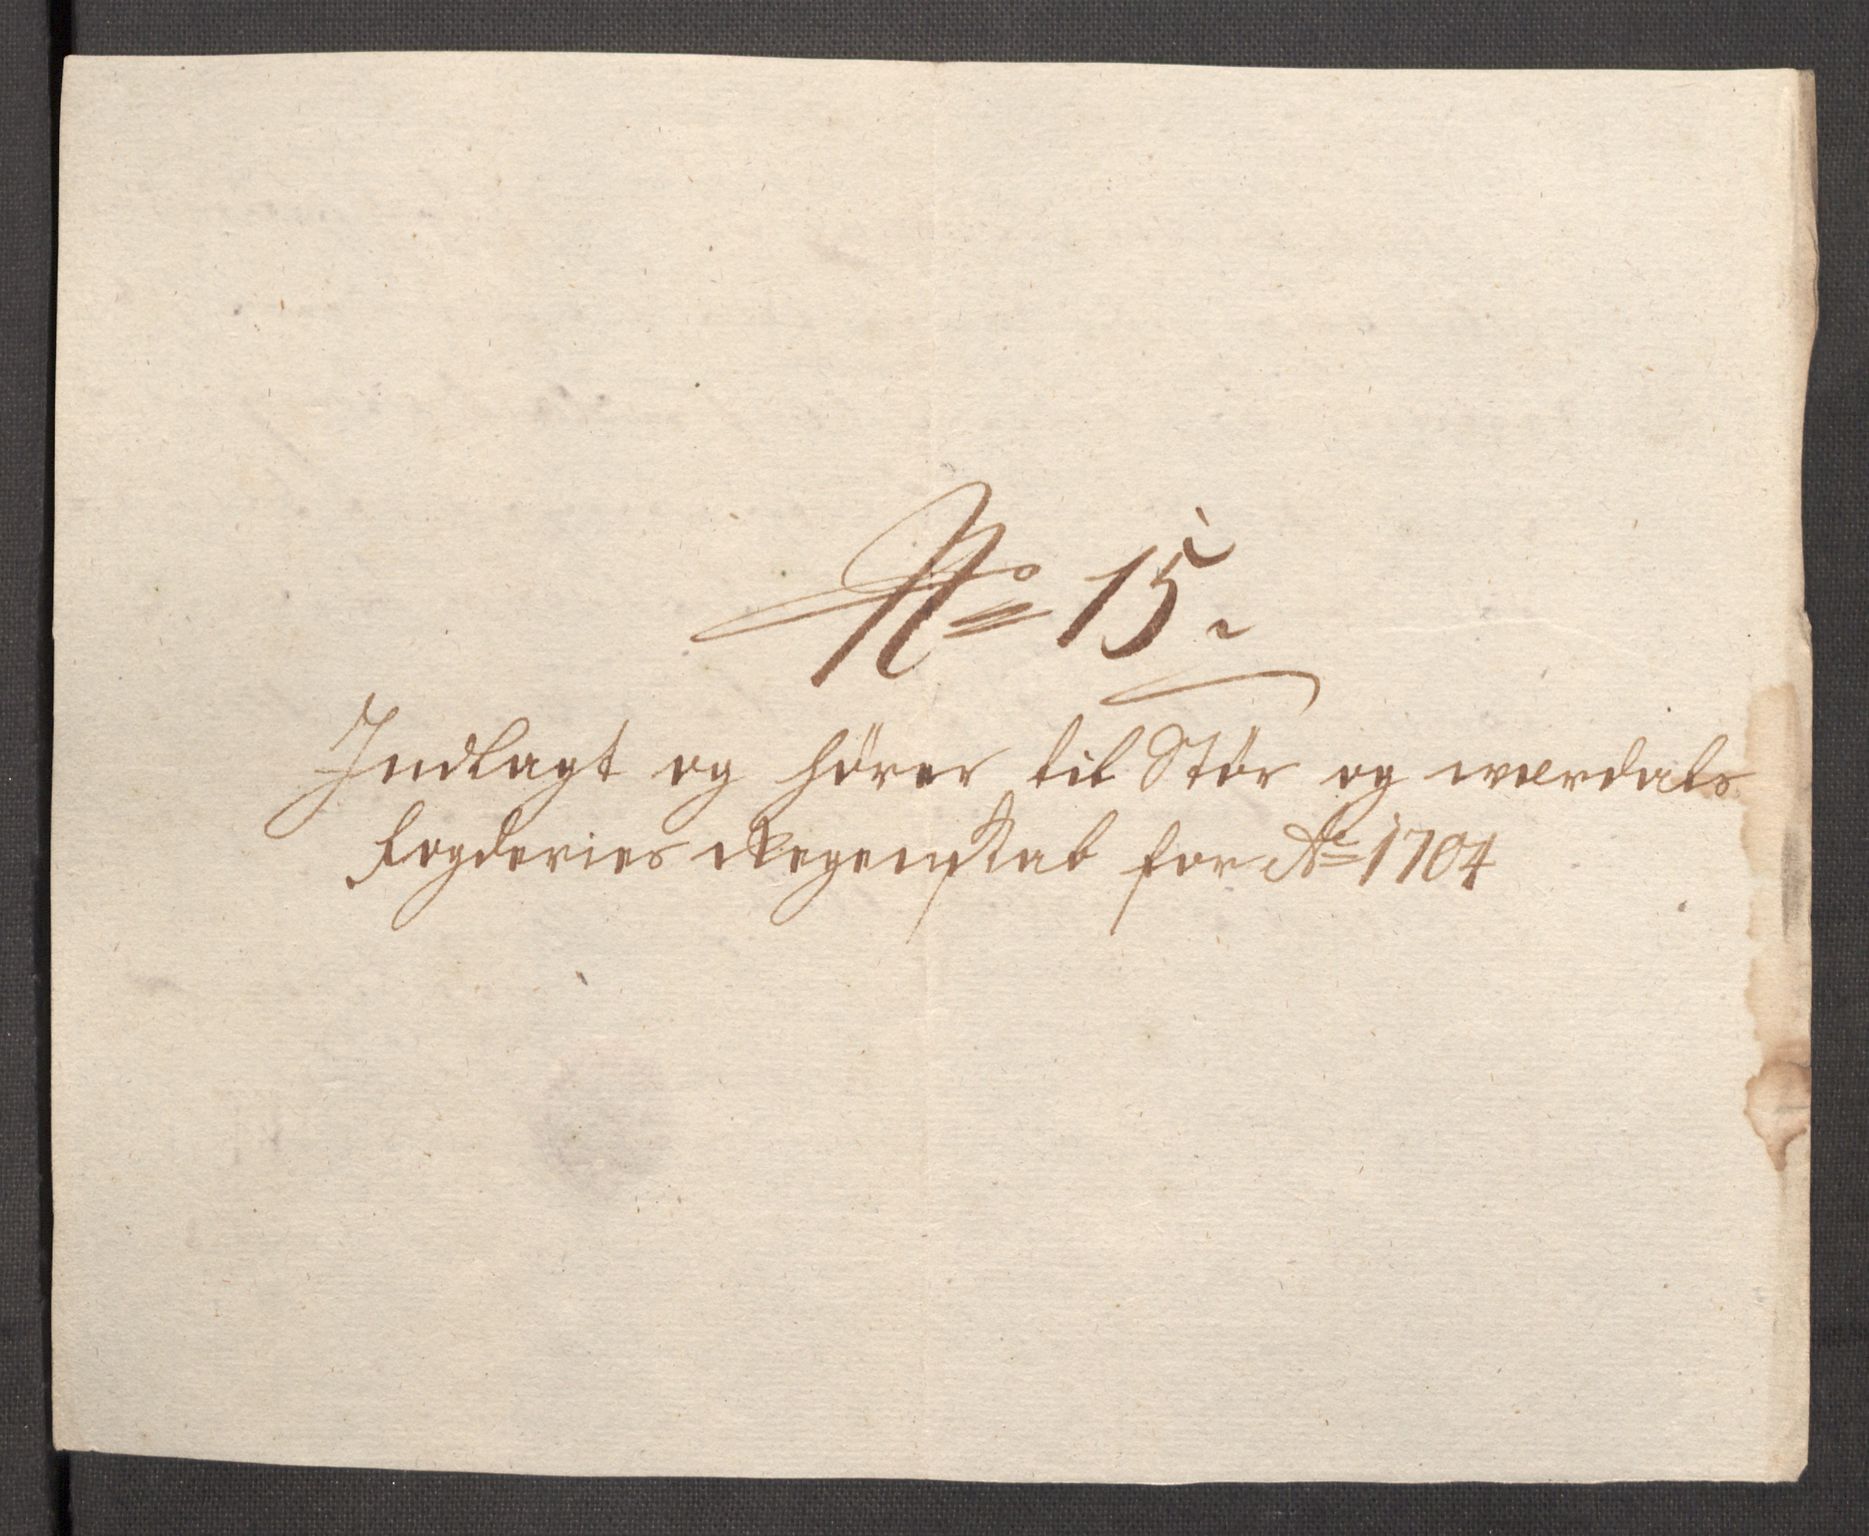 No 15.
Indlagt og hörer til Stör og werdals
fogderies Regenskab for Ao 1704